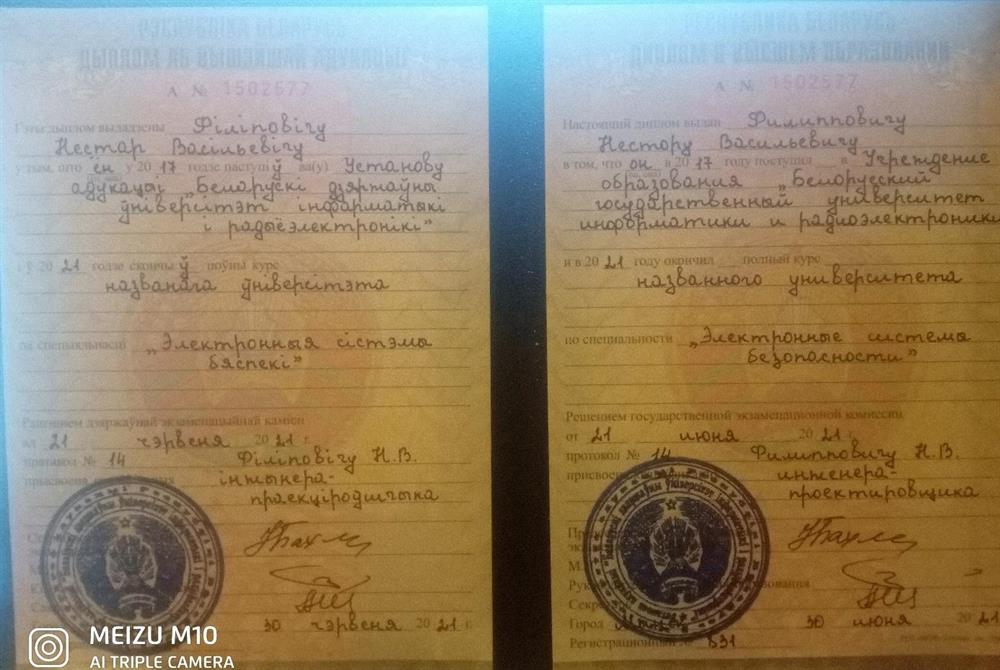 РЭСПУБЛІКА БЕЛАРУСЬ
ДЫПЛОМ АБ ВЫШЭЙШАЙ АДУКАЦЫІ
А № 1502577
Гэты дыплом выдадзены Філіповічу
Нестар Васільевічу
у тым, што ён у 20 17 годзе паступі ў ва(у) Установу
адукацыі „Беларускі дзяржаўны
ўніверсітэт інфарматыкі
і радыёэлектронікі"
і ў 20 21 годзе скончы ў поўны курс
названага ўніверсітэта
па спецыяльнасці „Электронныя сістэмы
бяспекі"
Рашэннем дзяржаўнай экзаменацыйнай камісіі
ад 21 чэрвеня 20 21 г.
пратакол № 14 Філіповічу Н.В.
прысвоена
інжынера-
праекціродшчыка
30 чэрвеня 20 21
РЕСПУБЛИКА БЕЛАРУСЬ
ДИПЛОМ О ВЫСШЕМ ОБРАЗОВАНИИ
А № 1502577
Настоящий диплом выдан Филипповичу
Нестору Васильевичу
в том, что он в 20 17 году поступил в Учреждение
образования „Белорусский
государственный университет
информатики и радиоэлектроники
и в 20 21 году окончил полный курс
названного университета
по специальности „Электронные системы
безопасности"
Решением государственной экзаменационной комиссии
от 21 июня 20 21 г.
протокол № 14 Филипповичу Н.В.
присвоен
инженера-
проектировщика
М.
Секре
Город 30 июня 20 21
Регистрационный 831
MEIZU M10
AI TRIPLE CAMERA